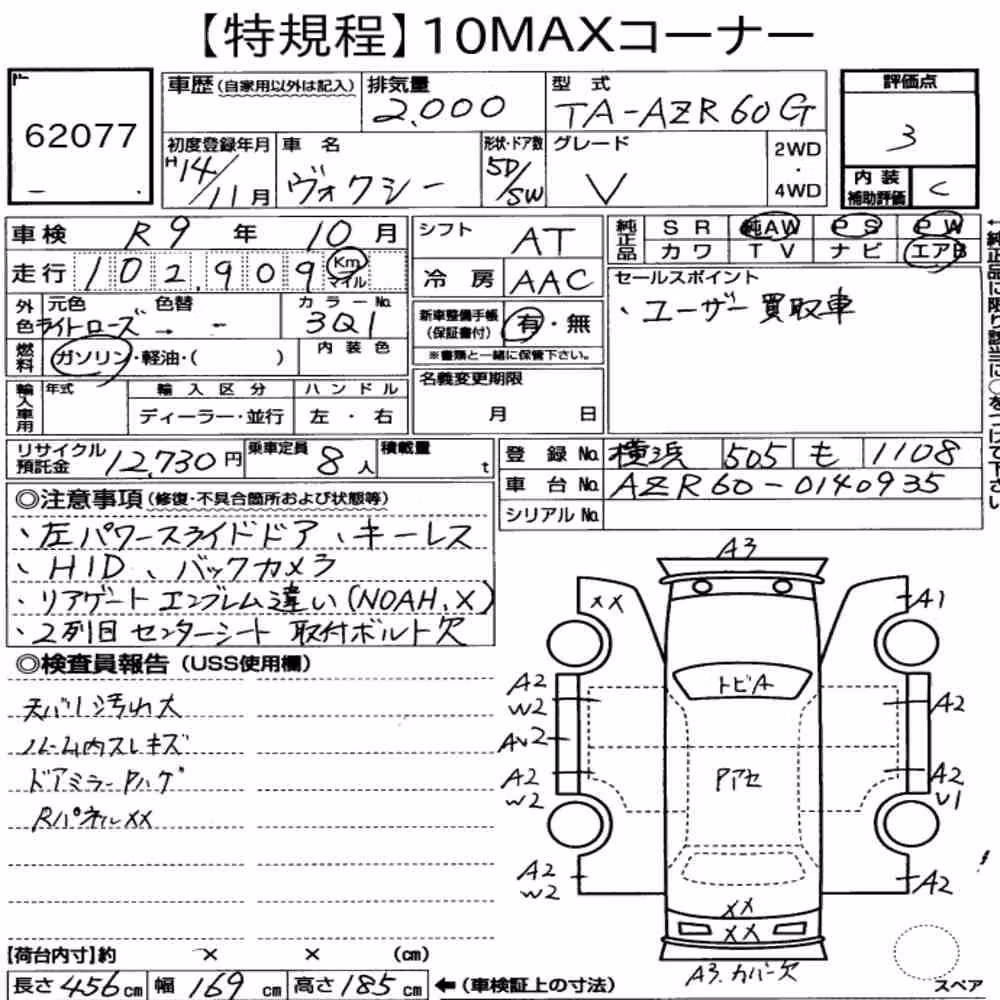 【特規程】10MAXコーナー
62077
車歴(自家用以外は記入)
排気量
2,000
型式
TA-AZR60G
評価点
3
初度登録年月
H14/11月
車名
ヴォクシー
形状・ドア数
5D/SW
グレード
V
2WD
・
4WD
内装
補助評価
C
車検 R9年 10月
走行 102,909 Km マイル
シフト
AT
冷房 AAC
純正品
SR 純AW PS PW
カワ TV ナビ エアB
←純正品に限り該当に○をつけて下さい
セールスポイント
・ユーザー買取車
外色
元色 色替
ライトローズ → -
カラーNo.
3Q1
新車整備手帳
(保証書付)
有・無
※書類と一緒に保管下さい。
燃料
ガソリン・軽油・( )
内装色
輸入車用
年式
輸入区分
ディーラー・並行
ハンドル
左・右
名義変更期限
月 日
リサイクル
預託金
12,730円
乗車定員
8人
積載量
t
登録No. 横浜 505 も 1108
車台No. AZR60-0140935
シリアルNo.
◎注意事項(修復・不具合箇所および状態等)
、左パワースライドドア、キーレス
、HID、バックカメラ
・リアゲートエンブレム違い(NOAH.X)
、2列目センターシート取付ボルト欠
◎検査員報告(USS使用欄)
天バリ汚れ大
ルーム内スレキズ
ドアミラーPハゲ
RパネルXX
A3
XX
A1
トビA
A2
W2
A2
AV2
A2
W2
Pアセ
A2
V1
A2
W2
A2
XX
XX
A3.カバー欠
スペア
【荷台内寸】約 × × (cm)
長さ456cm 幅169cm 高さ185cm ←(車検証上の寸法)